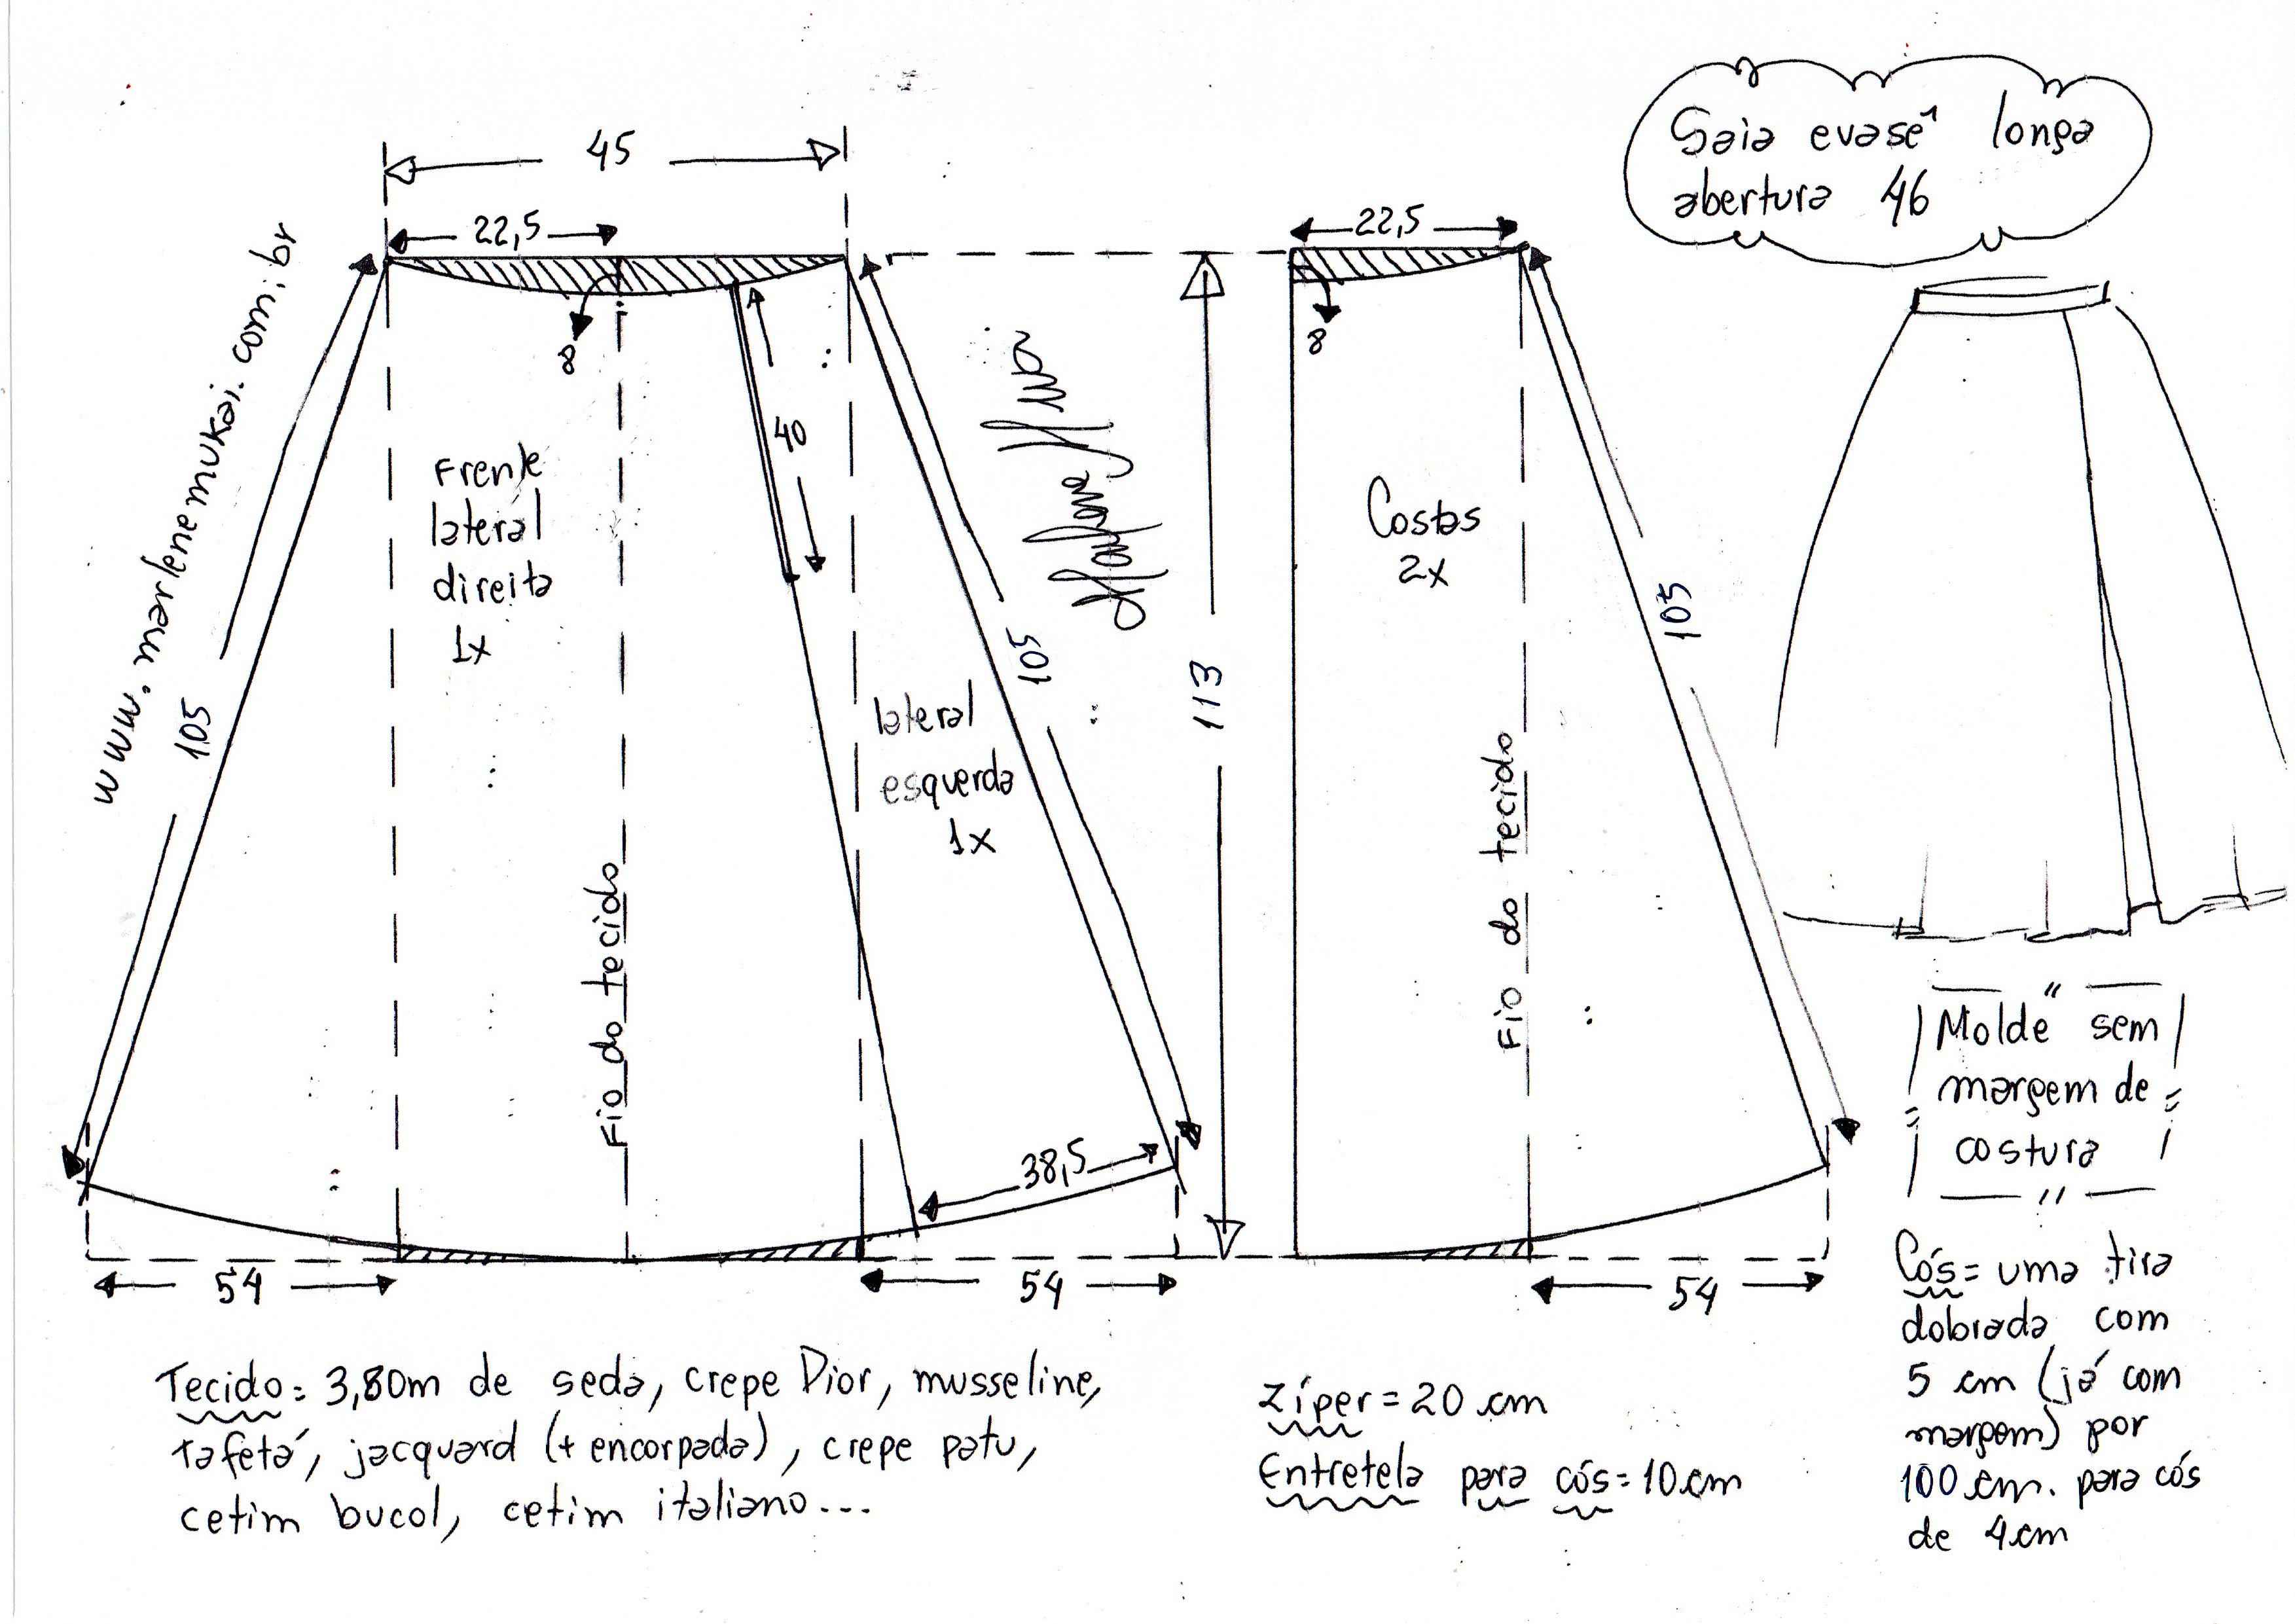 Saia evasê longa
abertura 46
45
22,5
22,5
8
8
www.marlenemukai.com.br
Frente
lateral
direita
1x
40
Costas
2x
105
105
105
113
lateral
esquerda
1x
Fio do tecido
Fio do tecido
38,5
54
54
54
"Molde sem
margem de
costura"
Cós = uma tira
dobrada com
5 cm (já com
margem) por
100 cm. para cós
de 4 cm
Tecido = 3,80m de seda, crepe Dior, musseline,
tafetá, jacquard (+ encorpada), crepe patu,
cetim bucol, cetim italiano...
Zíper = 20 cm
Entretela para cós = 10 cm